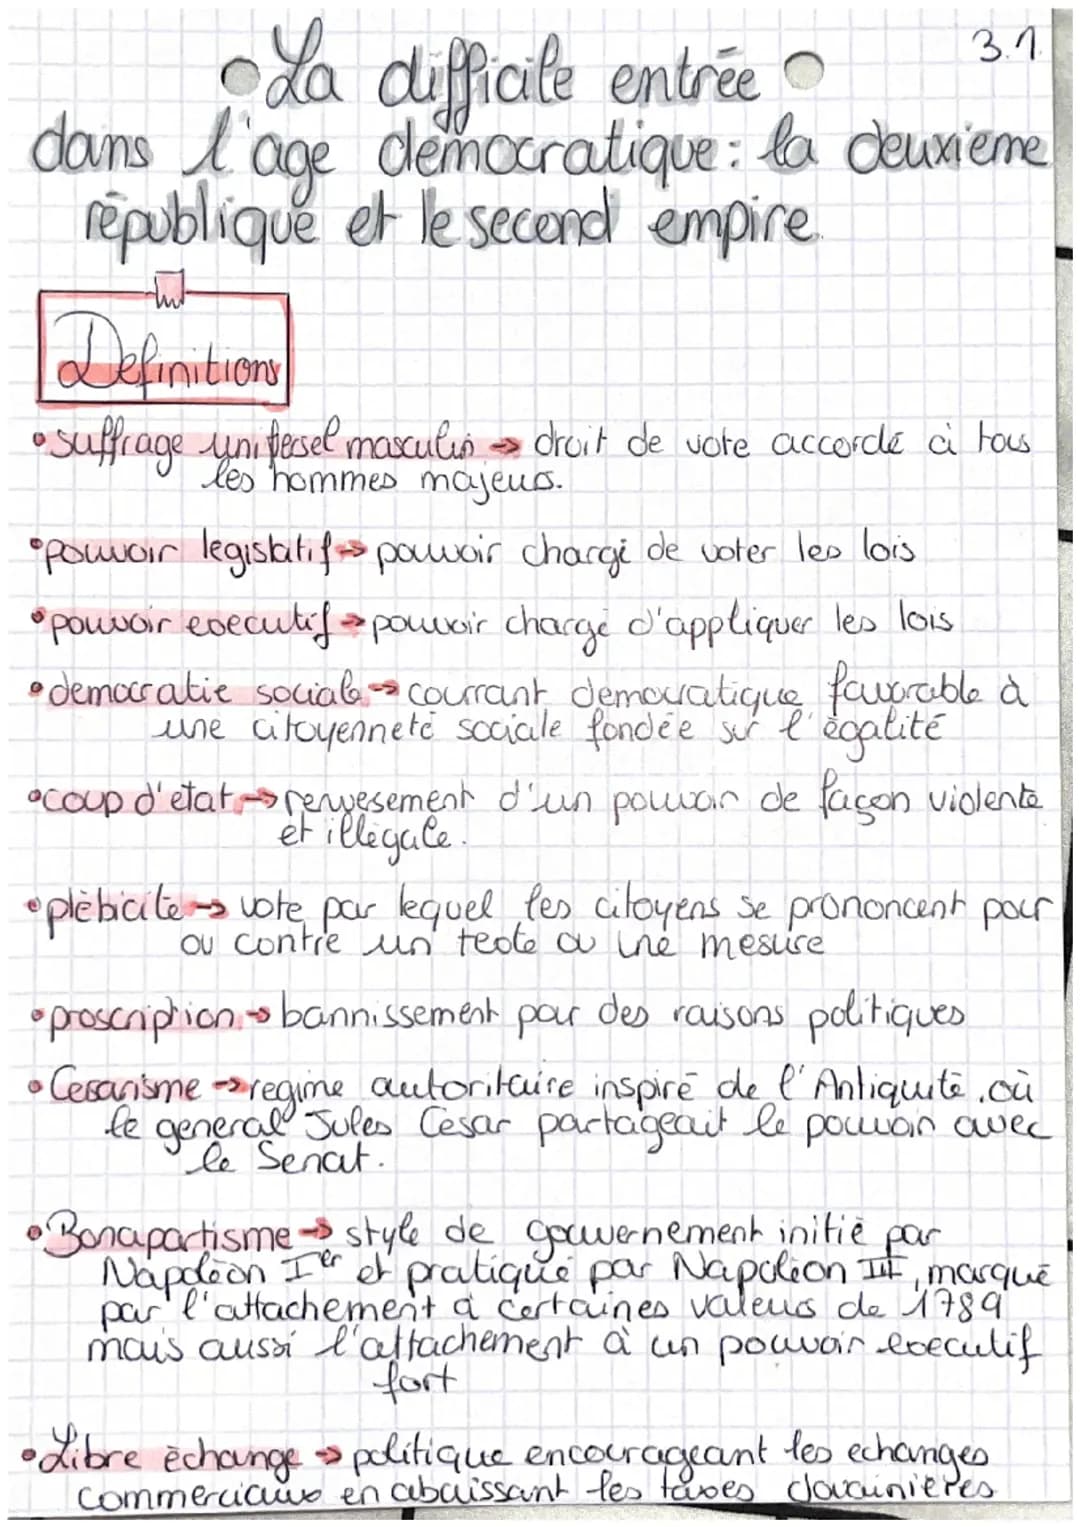 3.1.
La difficile entrée
dans l'age démocratique: la deuxieme
république et le second empire.
Definitions
• suffrage universel masculin → droit de vote accordé à tous
les hommes majeurs.
• pouvoir legislatif → pouvoir chargé de voter les lois
• pouvoir executif → pouvoir chargé d'appliquer les lois
• democratie sociale → courrant democratique favorable à
une citoyenneté sociale fondée sur l'égalité
• coup d'etat → renversement d'un pouvoir de façon violente
et illégale.
• plébicite → vote par lequel les citoyens se prononcent pour
ou contre un texte ou une mesure
• proscription → bannissement pour des raisons politiques
• Cesarisme → regime autoritaire inspiré de l'Antiquité, où
le general Jules Cesar partageait le pouvoir avec
le Senat.
• Bonapartisme → style de gouvernement initié par
Napoléon Ier et pratiqué par Napoléon III, marqué
par l'attachement à certaines valeurs de 1789
mais aussi l'attachement à un pouvoir executif
fort
• Libre échange → politique encourageant les echanges
commerciaux en abaissant les taxes douainières